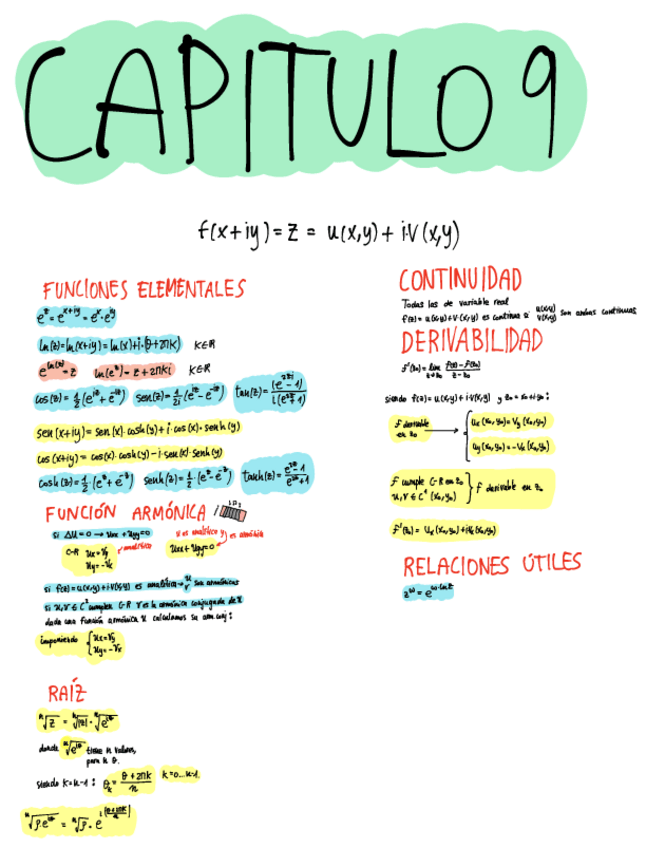 CAPITULO 9
f(x+iy) = z = u(x,y) + i·v(x,y)
FUNCIONES ELEMENTALES
e^z = e^(x+iy) = e^x · e^(iy)
ln(z) = ln(x+iy) = ln(x) + i·(θ+2πk) k∈ℝ
e^(ln(z)) = z ln(e^z) = z + 2πki k∈ℝ
cos(z) = 1/2 (e^(iz) + e^(-iz)) sen(z) = 1/2i (e^(iz) - e^(-iz)) tan(z) = (e^(2zi) - 1) / i(e^(2zi) + 1)
sen(x+iy) = sen(x)·cosh(y) + i·cos(x)·senh(y)
cos(x+iy) = cos(x)·cosh(y) - i·sen(x)·senh(y)
cosh(z) = 1/2·(e^z + e^-z) senh(z) = 1/2·(e^z - e^-z) tanh(z) = (e^(2z) - 1) / (e^(2z) + 1)
FUNCIÓN ARMÓNICA
si Δu=0 → uxx + uyy = 0
si es analítica y es armónica
C-R ux = vy
uy = -vx
analítica
uxx + uyy = 0
si f(z) = u(x,y) + i·v(x,y) es analítica → u v son armónicas
si u, v ∈ C² cumplen C-R v es la armónica conjugada de u
dada una función armónica u calculamos su arm conj:
imponiendo { ux = vy
uy = -vx
RAÍZ
ⁿ√z = ⁿ√|z| · ⁿ√e^(iθ)
donde ⁿ√e^(iθ) tiene n valores,
para n θ.
siendo k=n-1: θk = (θ + 2πk)/n k=0...n-1.
ⁿ√ρ·e^(iθ) = ⁿ√ρ · e^(i(θ+2πk)/n)
CONTINUIDAD
Todas las de variable real
f(z) = u(x,y) + v·(x,y) es continua si u(x,y) v(x,y) son ambas continuas
DERIVABILIDAD
f'(z₀) = lim z→z₀ (f(z) - f(z₀)) / (z - z₀)
siendo f(z) = u(x,y) + i·v(x,y) y z₀ = x₀+iy₀:
f derivable en z₀ → { ux(x₀,y₀) = vy(x₀,y₀)
uy(x₀,y₀) = -vx(x₀,y₀)
f cumple C-R en z₀
u, v ∈ C¹ (x₀,y₀) } f derivable en z₀
f'(z₀) = ux(x₀,y₀) + ivx(x₀,y₀)
RELACIONES ÚTILES
z^w = e^(w·ln z)